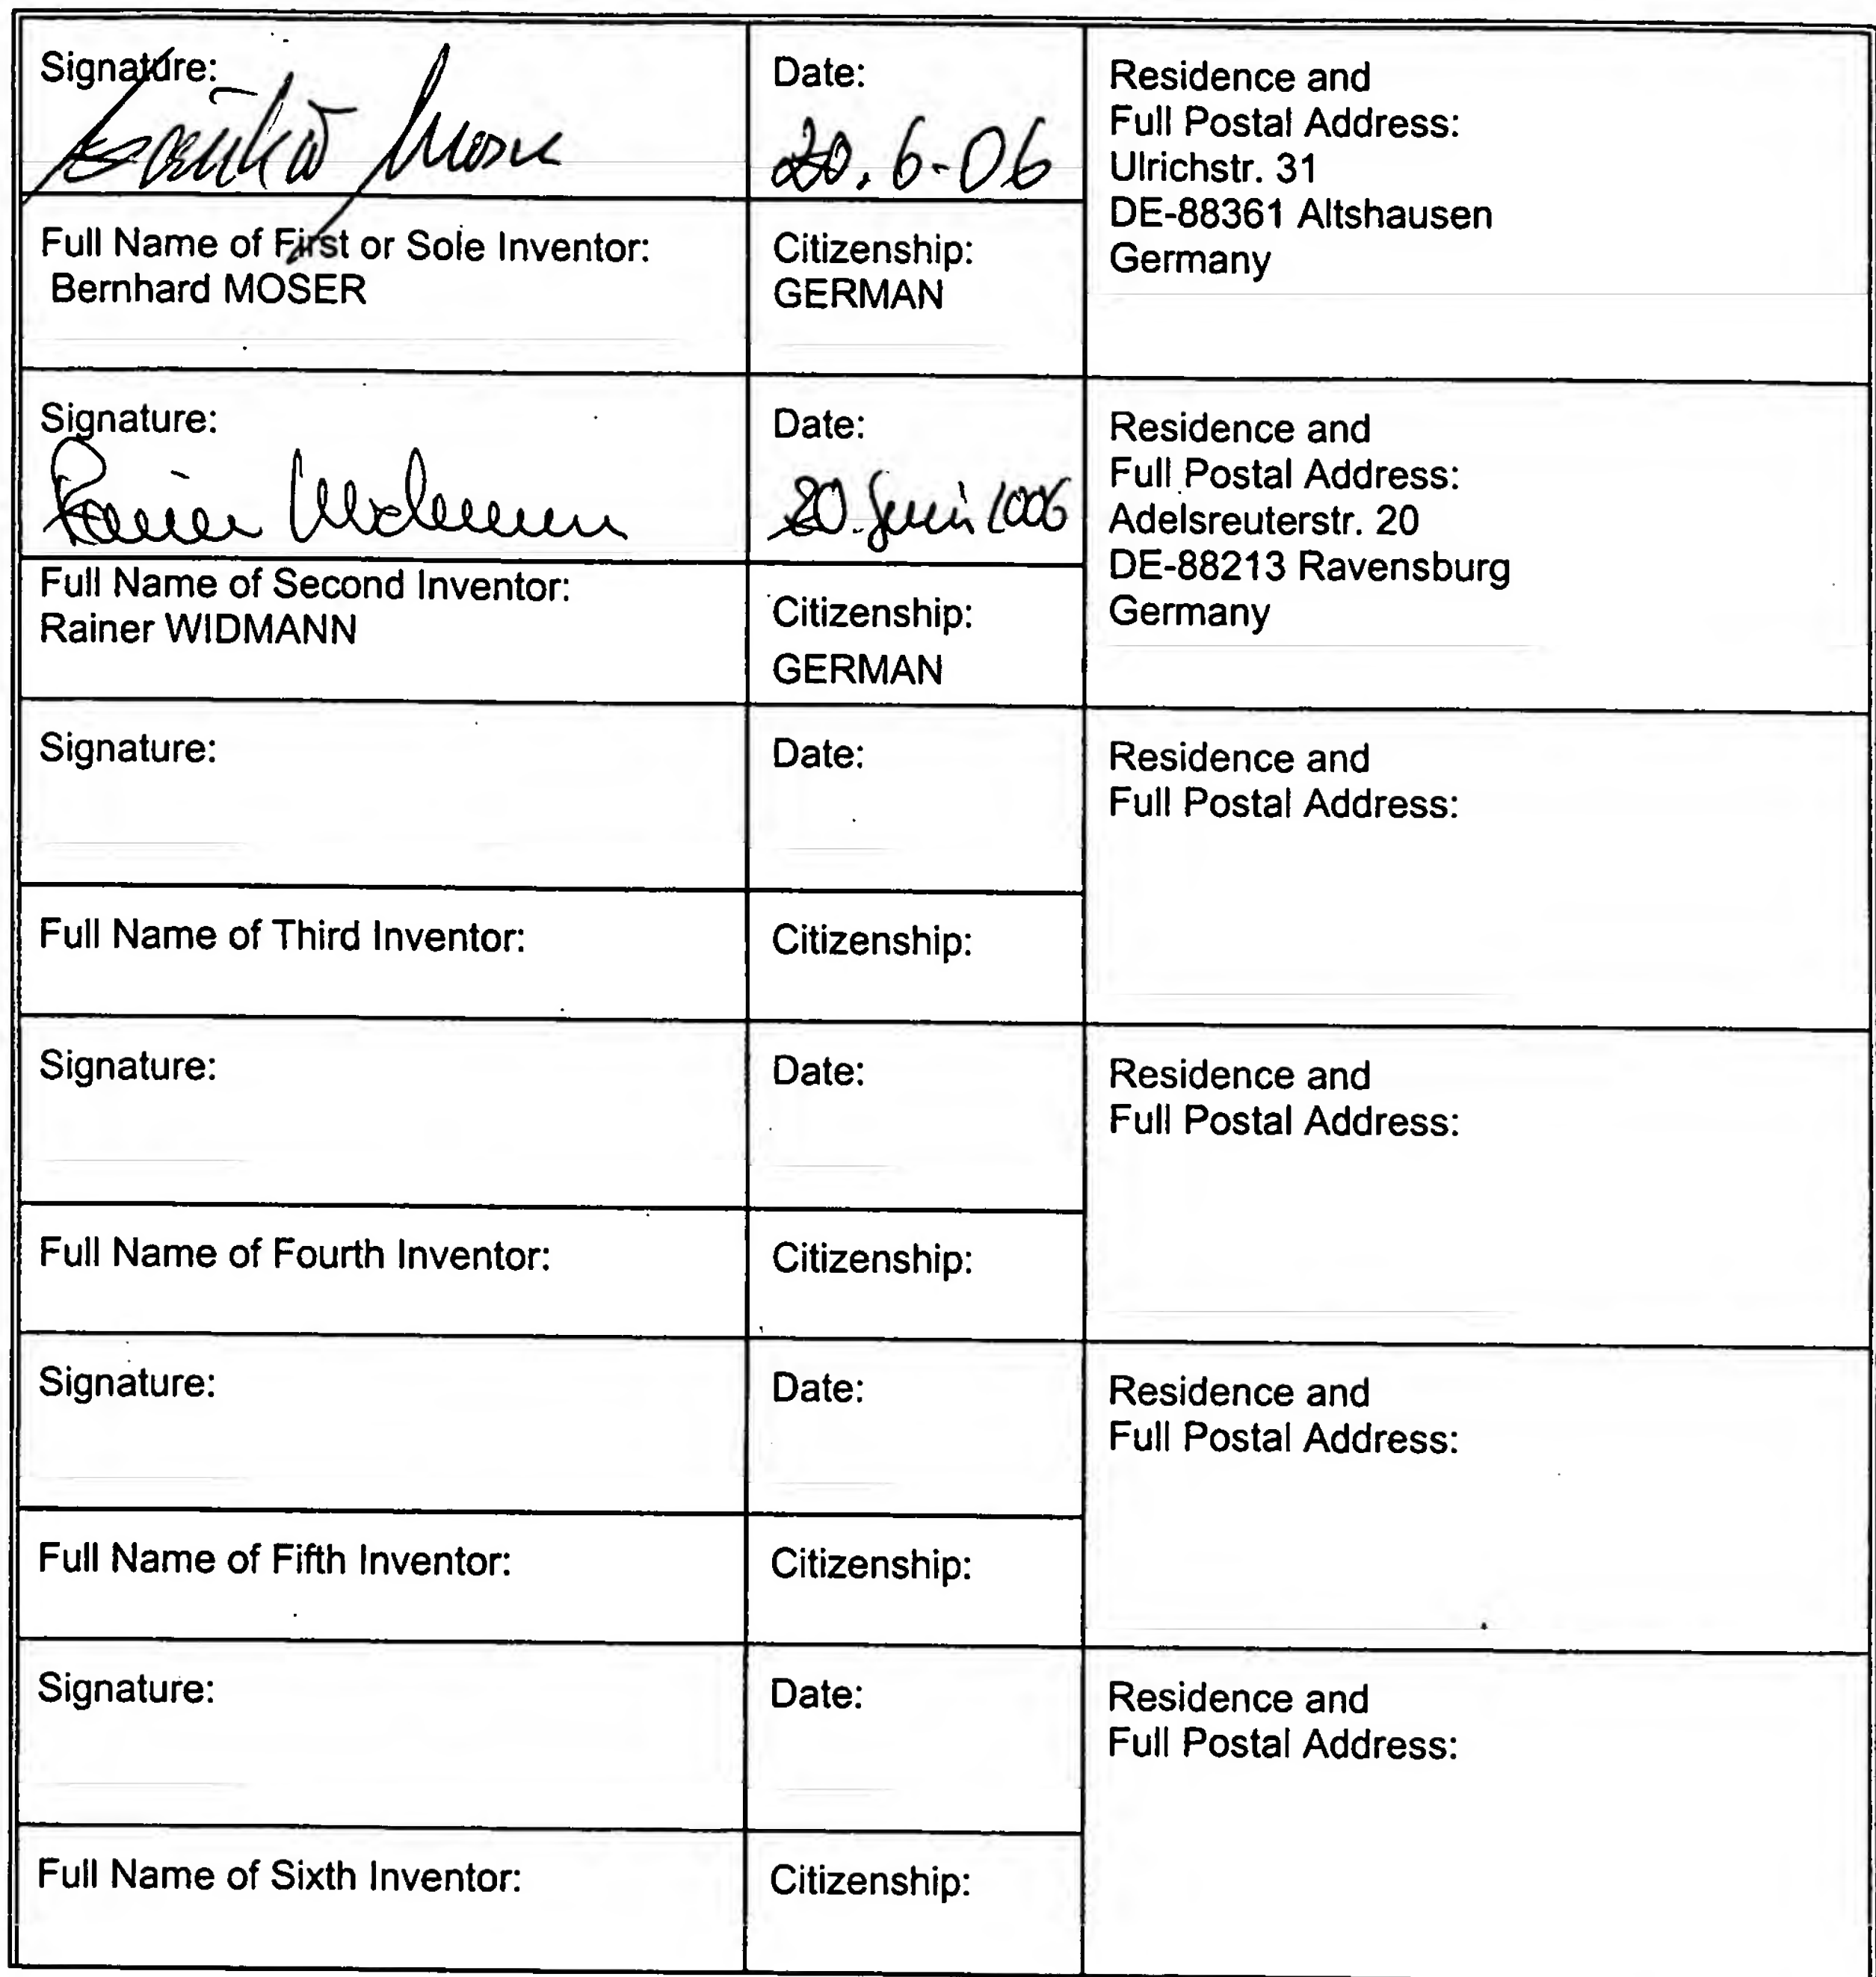 Signature:
Bernhard Moser
Date:
20.6-06
Residence and
Full Postal Address:
Ulrichstr. 31
DE-88361 Altshausen
Germany
Full Name of First or Sole Inventor:
Bernhard MOSER
Citizenship:
GERMAN
Signature:
Rainer Widmann
Date:
20. Juni 2006
Residence and
Full Postal Address:
Adelsreuterstr. 20
DE-88213 Ravensburg
Germany
Full Name of Second Inventor:
Rainer WIDMANN
Citizenship:
GERMAN
Signature:
Date:
Residence and
Full Postal Address:
Full Name of Third Inventor:
Citizenship:
Signature:
Date:
Residence and
Full Postal Address:
Full Name of Fourth Inventor:
Citizenship:
Signature:
Date:
Residence and
Full Postal Address:
Full Name of Fifth Inventor:
Citizenship:
Signature:
Date:
Residence and
Full Postal Address:
Full Name of Sixth Inventor:
Citizenship: